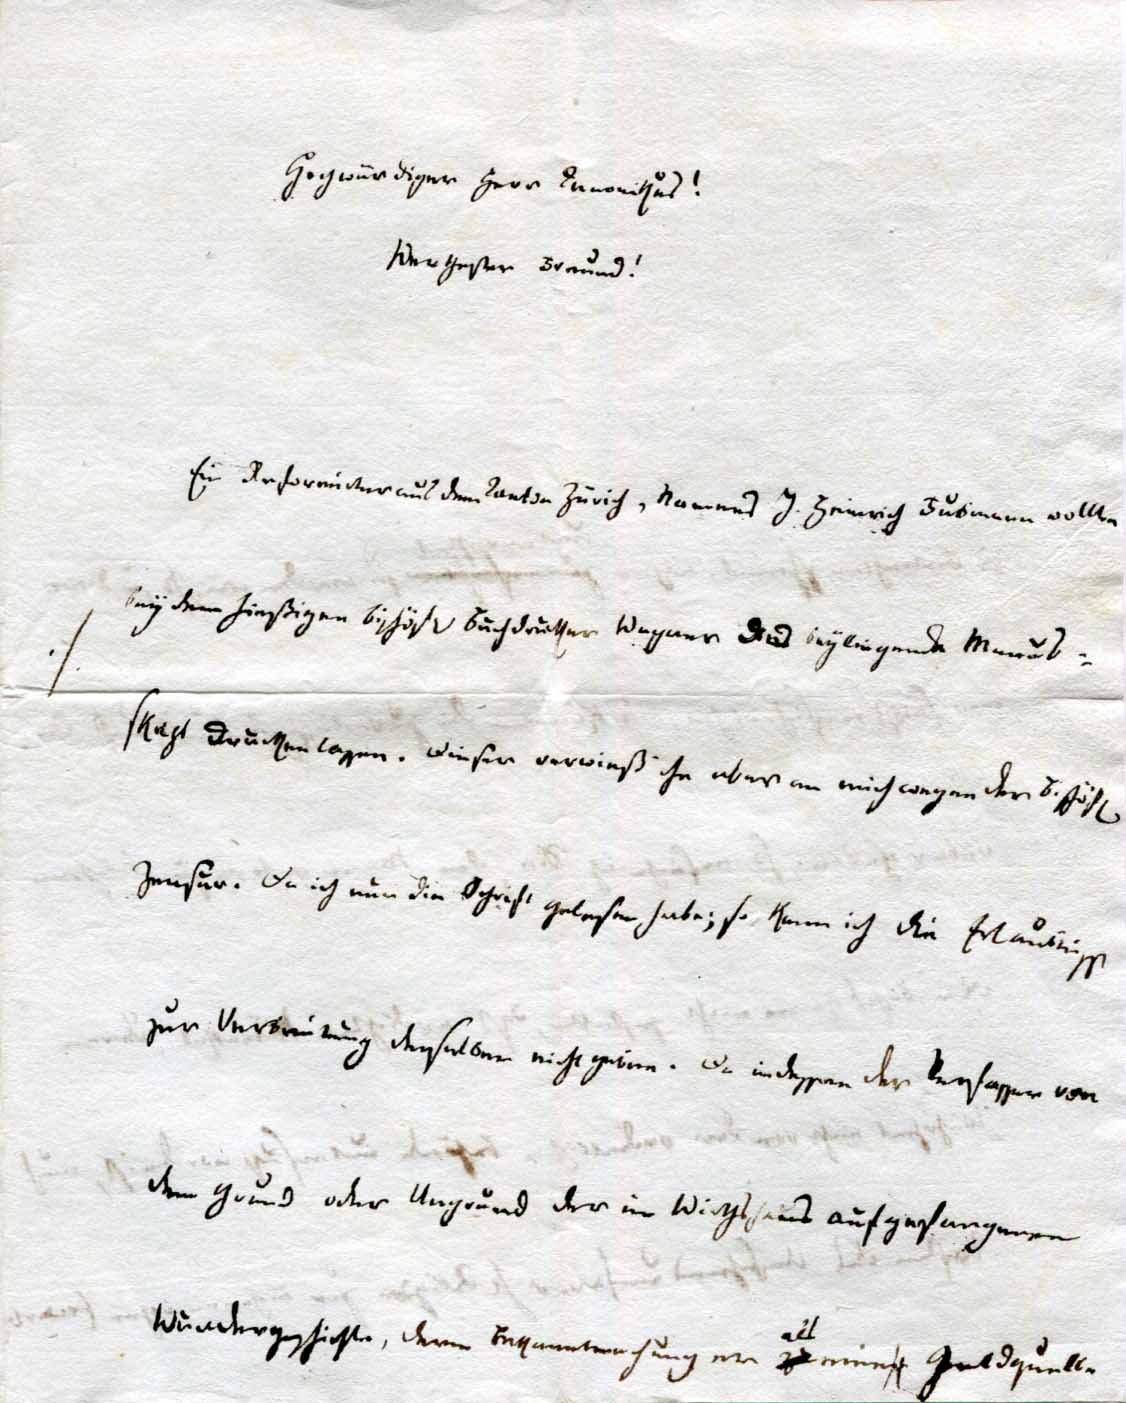 Hochwürdiger Herr Kanonikus!
Werthester Freund!
Ein Reformirter aus dem Canton Zürich, Namens J. Heinrich Bubmann wollte
bey dem hießigen bischöfl. Buchdrucker Wagner das beyliegende Manus=
skript drucken lassen. Dieser verwieß ihn aber an mich wegen der bischöfl.
Zensur. Da ich nun die Schrift gelesen habe; so kann ich die Erlaubniß
zur Verbreitung derselben nicht geben. Da indessen der Verfasser von
dem Grund oder Ungrund der im Wirthshaus aufgefangenen
Wundergeschichte, deren Bekanntmachung er als eine Geldquelle